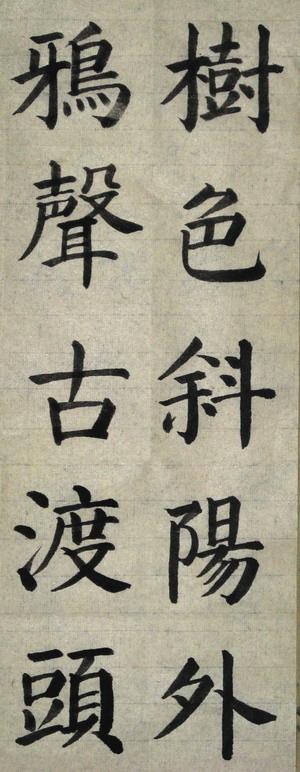 樹色斜陽外
鴉聲古渡頭